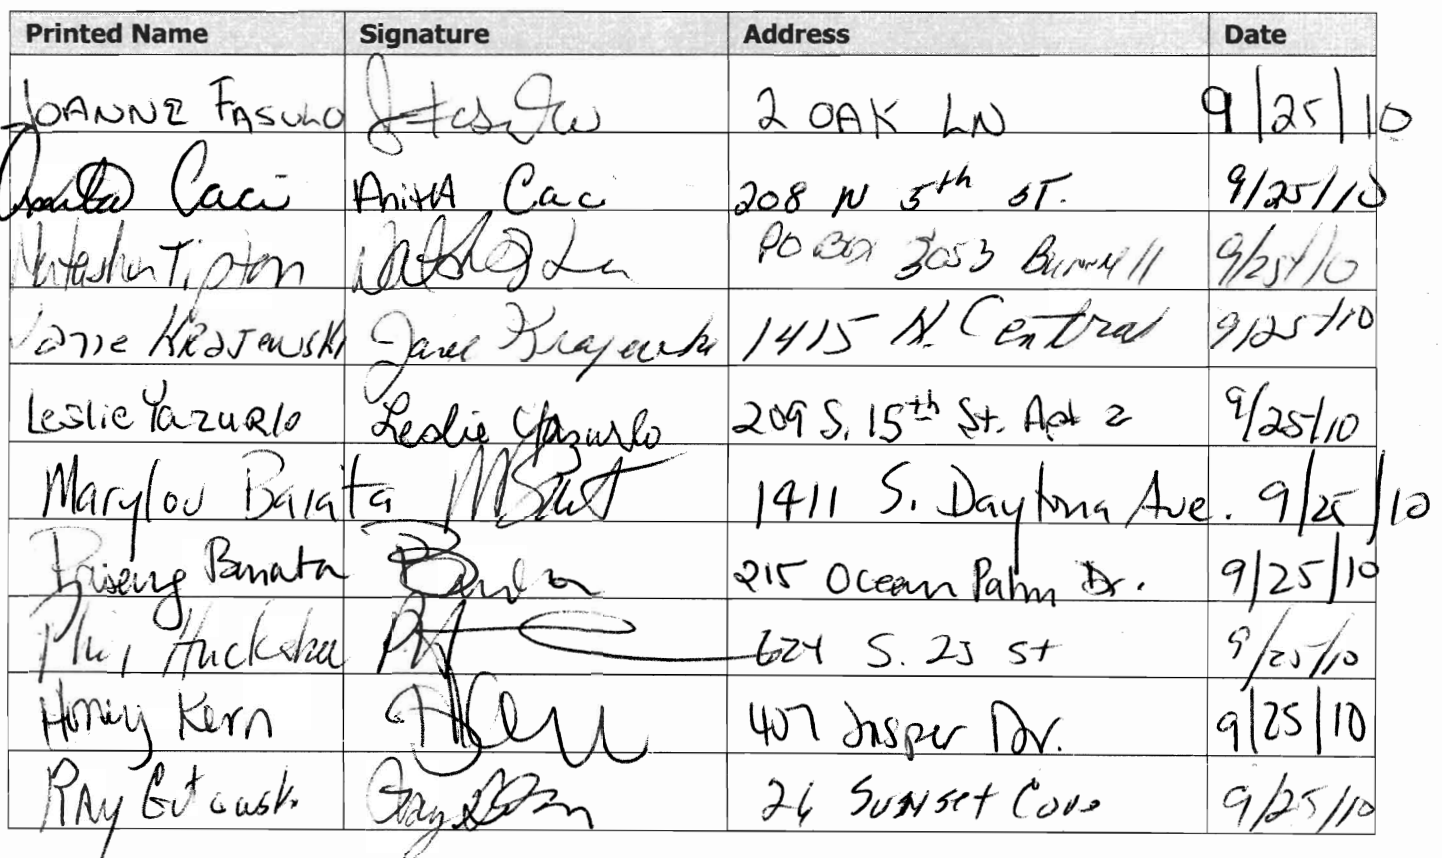 Printed Name Signature Address Date
JOANNE FASULO 2 OAK LN 9/25/10
Anita Caci Anita Caci 208 N 5th ST. 9/25/10
Natasha Tipton PO Box 3053 Bunnell 9/25/10
Jane Krajewski Jane Krajewski 1415 N. Central 9/25/10
Leslie Yazurlo Leslie Yazurlo 209 S. 15th St. Apt 2 9/25/10
Marylou Barata 1411 S. Daytona Ave. 9/25/10
Barata 215 Ocean Palm Dr. 9/25/10
Phil 624 S. 23 St 9/25/10
Honey Kern 407 Jasper Dr. 9/25/10
Ray 26 Sunset Cove 9/25/10